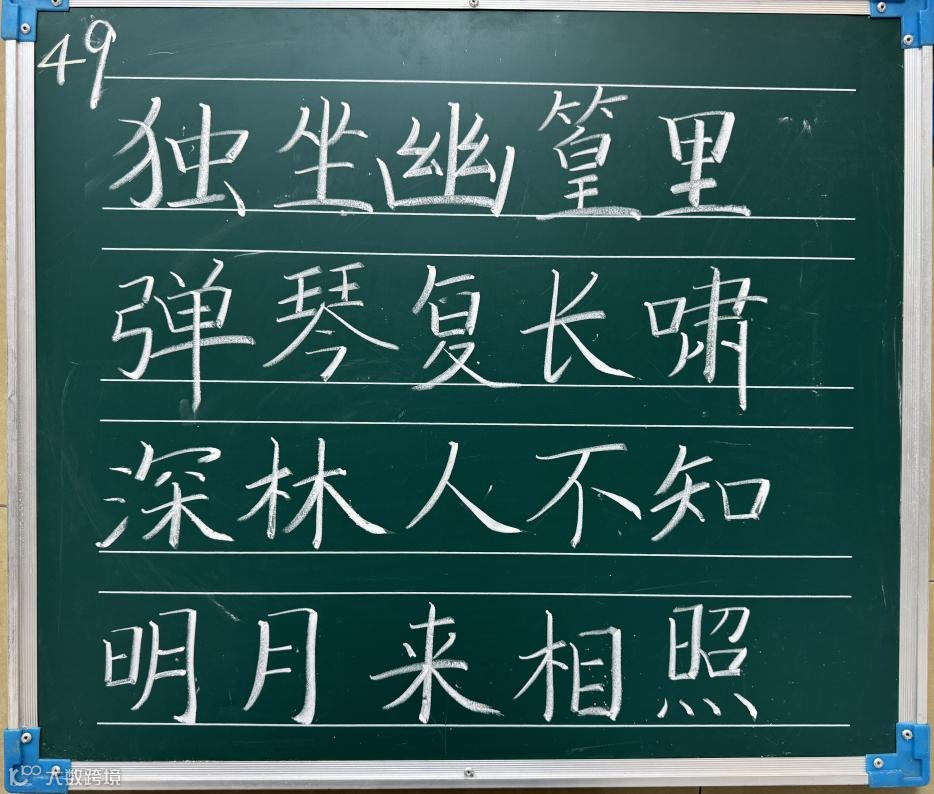 49
独坐幽篁里
弹琴复长啸
深林人不知
明月来相照
大数跨境